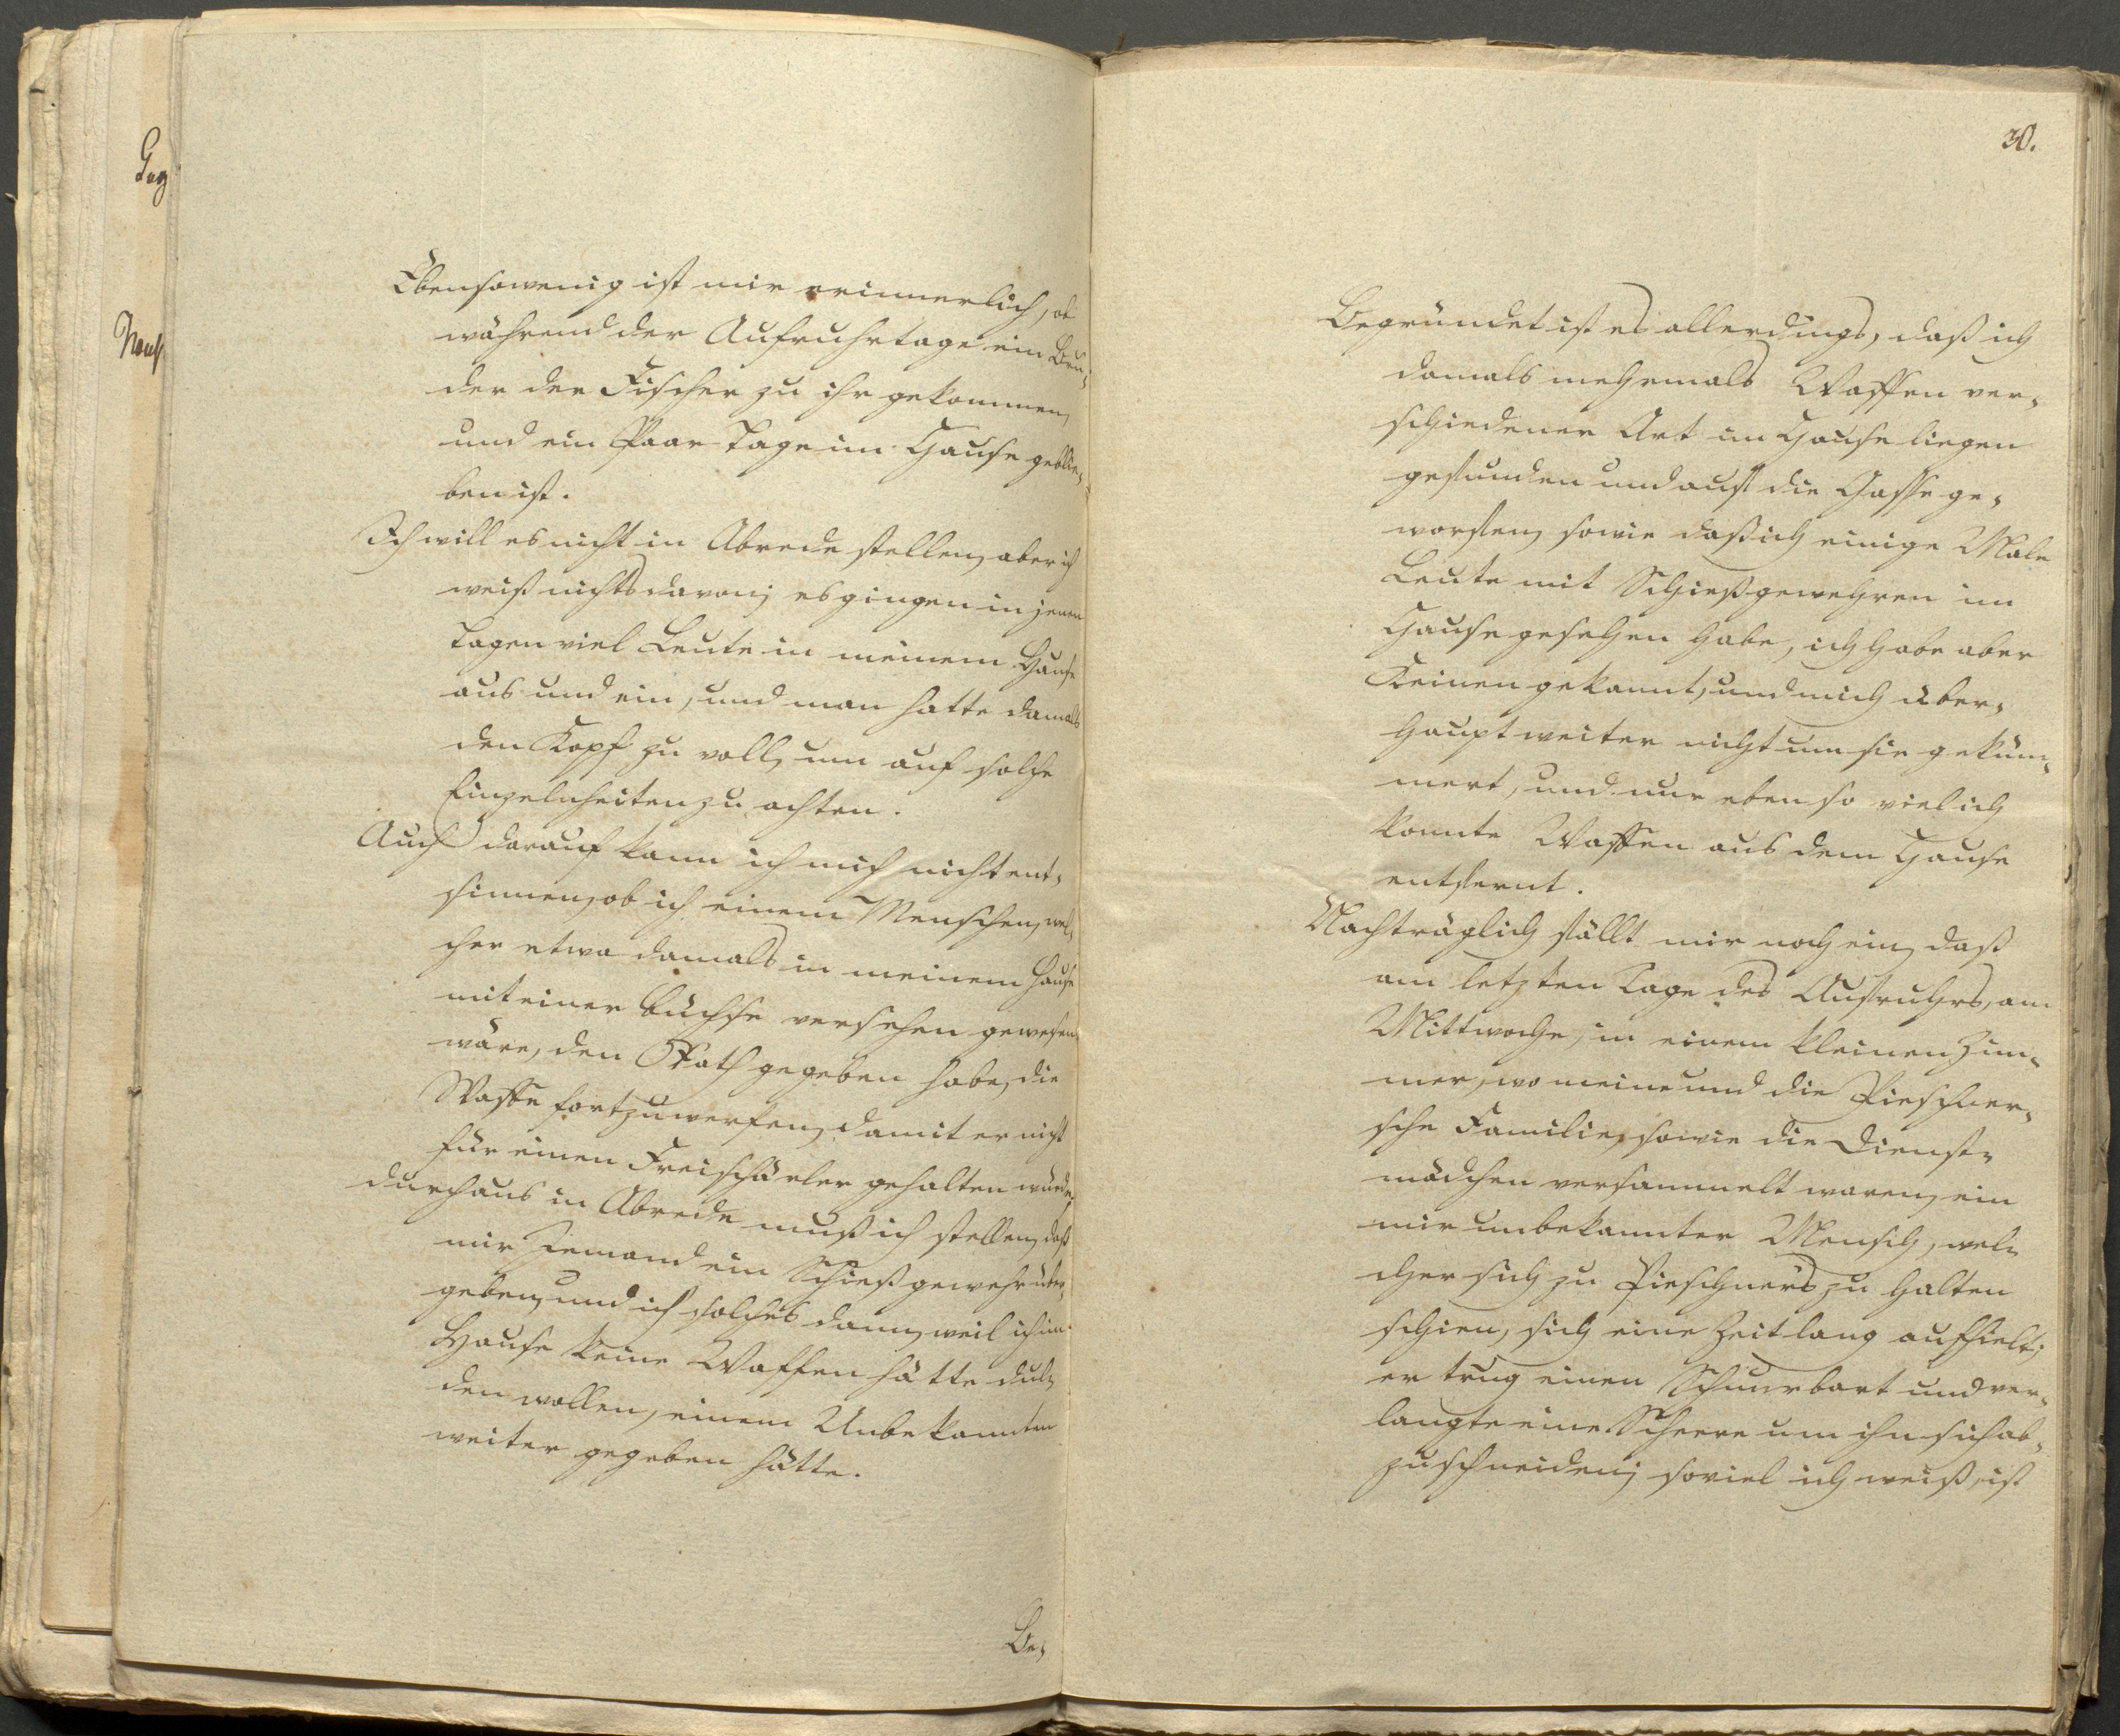 Ebensowenig ist mir erinnerlich, ob
während der Aufruhrtage ein Bru-
der der Fischer zu ihr gekommen,
und ein Paar Tage im Hause geblie-
ben ist.
Ich will es nicht in Abrede stellen, aber ich
weiß nichts davon; es gingen in jenen
Tagen viel Leute in meinem Hause
aus und ein, und man hatte damals
den Kopf zu voll, um auf solche
Einzelnheiten zu achten.
Auch darauf kann ich mich nicht ent-
sinnen, ob ich einem Menschen, wel-
cher etwa damals in meinem Hause
mit einer Büchse versehen gewesen
wäre, den Rath gegeben habe, die
Waffe fortzuwerfen, damit er nicht
für einen Freischärler gehalten würde,
durchaus in Abrede muß ich stellen, daß
mir Jemand ein Schießgewehr über-
geben, und ich solches dann, weil ich im
Hause keine Waffen hätte dul-
den wollen, einem Unbekannten
weiter gegeben hätte.
Be-
30.
Begründet ist es allerdings, daß ich
damals mehrmals Waffen ver-
schiedener Art im Hause liegen
gefunden und auf die Gasse ge-
worfen, sowie daß ich einige Male
Leute mit Schießgewehren im
Hause gesehen habe, ich habe aber
Keinen gekannt, und mich über-
haupt weiter nicht um sie geküm-
mert, und nur eben so viel ich
konnte Waffen aus dem Hause
entfernt.
Nachträglich fällt mir noch ein, daß
am letzten Tage des Aufruhrs, am
Mittwoche, in einem kleinen Zim-
mer, wo meine und die Pieschner-
sche Familie, sowie die Dienst-
mädchen versammelt waren, ein
mir unbekannter Mensch, wel-
cher sich zu Pieschners zu halten
schien, sich eine Zeit lang aufhielt;
er trug einen Schnurbart und ver-
langte eine Scheere um ihn sich ab-
zuschneiden; soviel ich weiß, ist